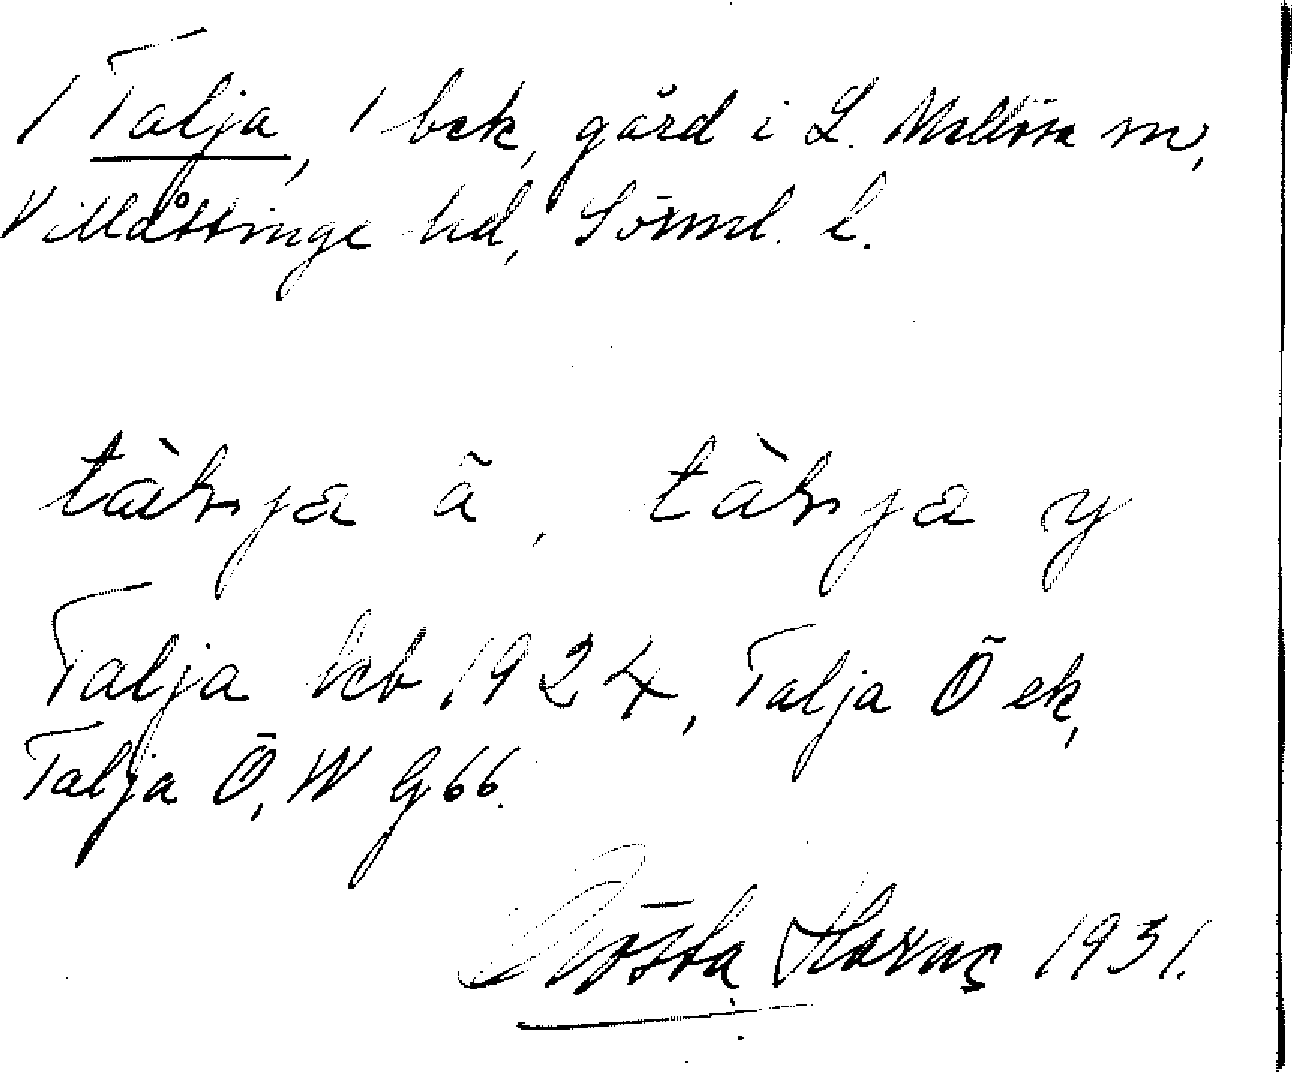 1 Talja, 1 bek, gård i L. Mellösa sn,
Villåttinge hd, Sörml. l.
tàl₂ja ã, tàl₂ja y
Talja kb 1924, Talja Ö ek,
Talja Ö, W G66.
Gösta 1931.